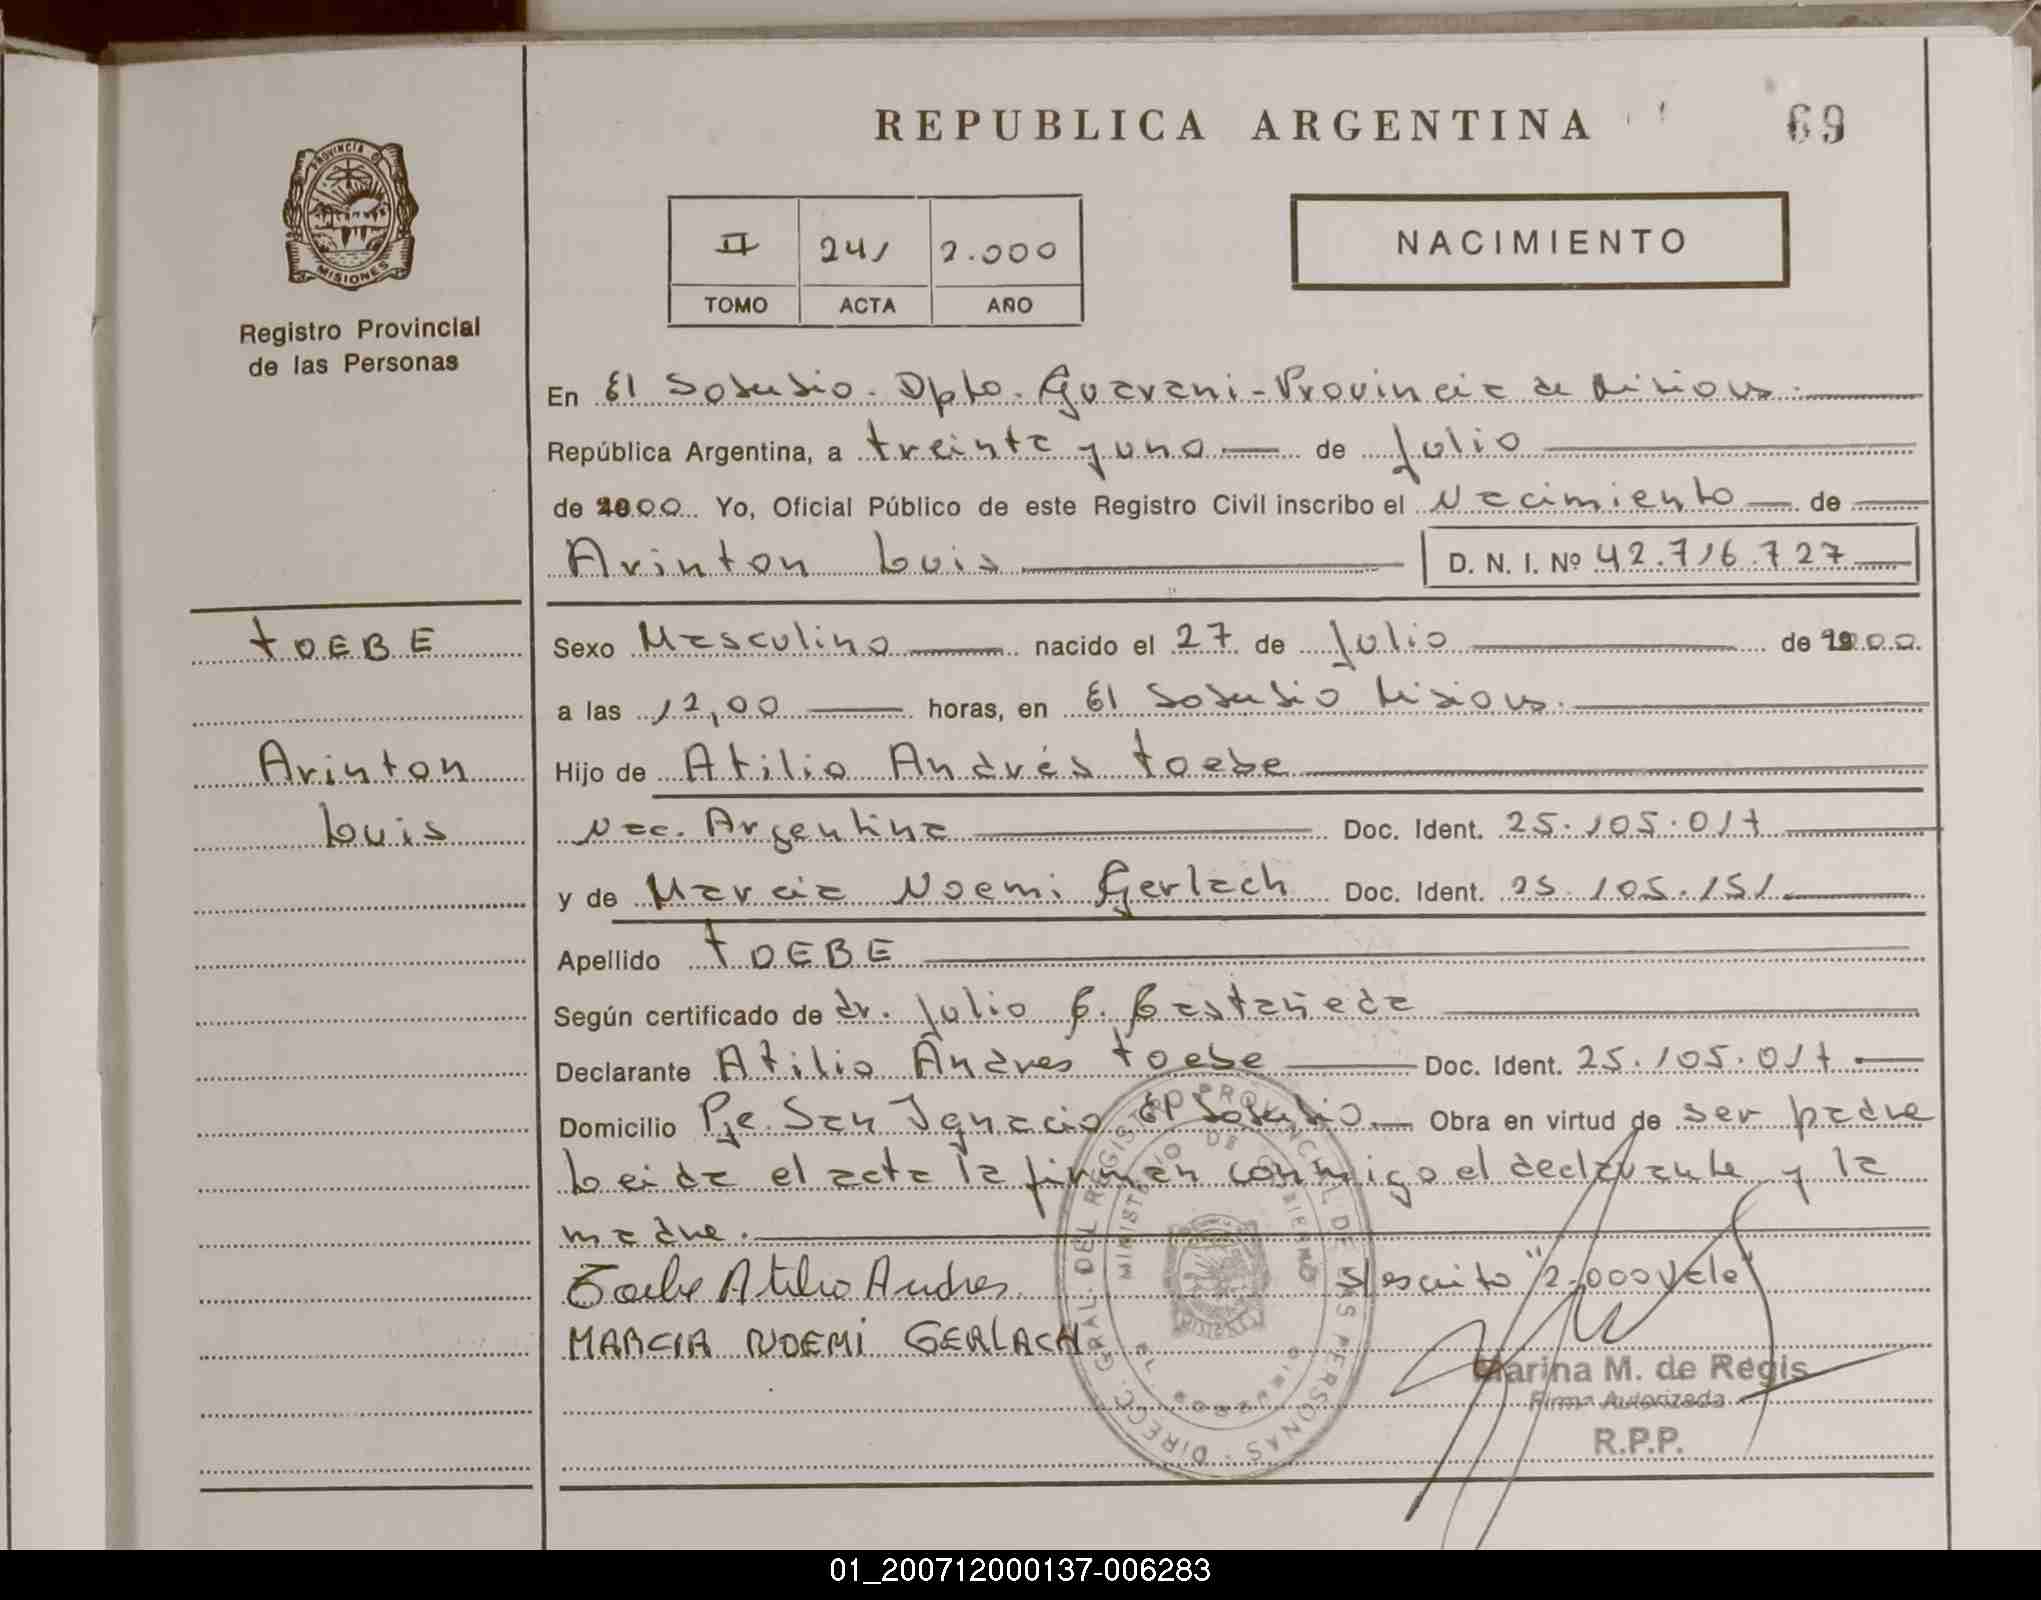 REPUBLICA ARGENTINA
69
PROVINCIA DE
MISIONES
Registro Provincial
de las Personas
II 241 2.000
TOMO ACTA AÑO
NACIMIENTO
En El Soberbio. Dpto. Guarani - Provincia de Misiones.
República Argentina, a treinta y uno de Julio
de 2000 Yo, Oficial Público de este Registro Civil inscribo el Nacimiento de
Arinton Luis D. N. I. Nº 42.716.727
TOEBE
Arinton
Luis
Sexo Masculino nacido el 27 de Julio de 2000.
a las 12,00 horas, en El Soberbio Misiones.
Hijo de Atilio Andrés Toebe
Nac. Argentina Doc. Ident. 25.105.017
y de Marcia Noemi Gerlach Doc. Ident. 25.105.151.
Apellido TOEBE
Según certificado de dr. Julio C. Castañeda
Declarante Atilio Andres Toebe Doc. Ident. 25.105.017
Domicilio Pje. San Ignacio El Soberbio. Obra en virtud de ser padre
Leida el acta la firman conmigo el declarante y la
madre.
Toebe Atilio Andres
S/escrito "2.000 Vale"
MARCIA NOEMI GERLACH
DIRECC. GRAL. DEL REGISTRO PROVINCIAL DE LAS PERSONAS
MINISTERIO DE GOBIERNO
Marina M. de Regis
Firma Autorizada
R.P.P.
01_200712000137-006283